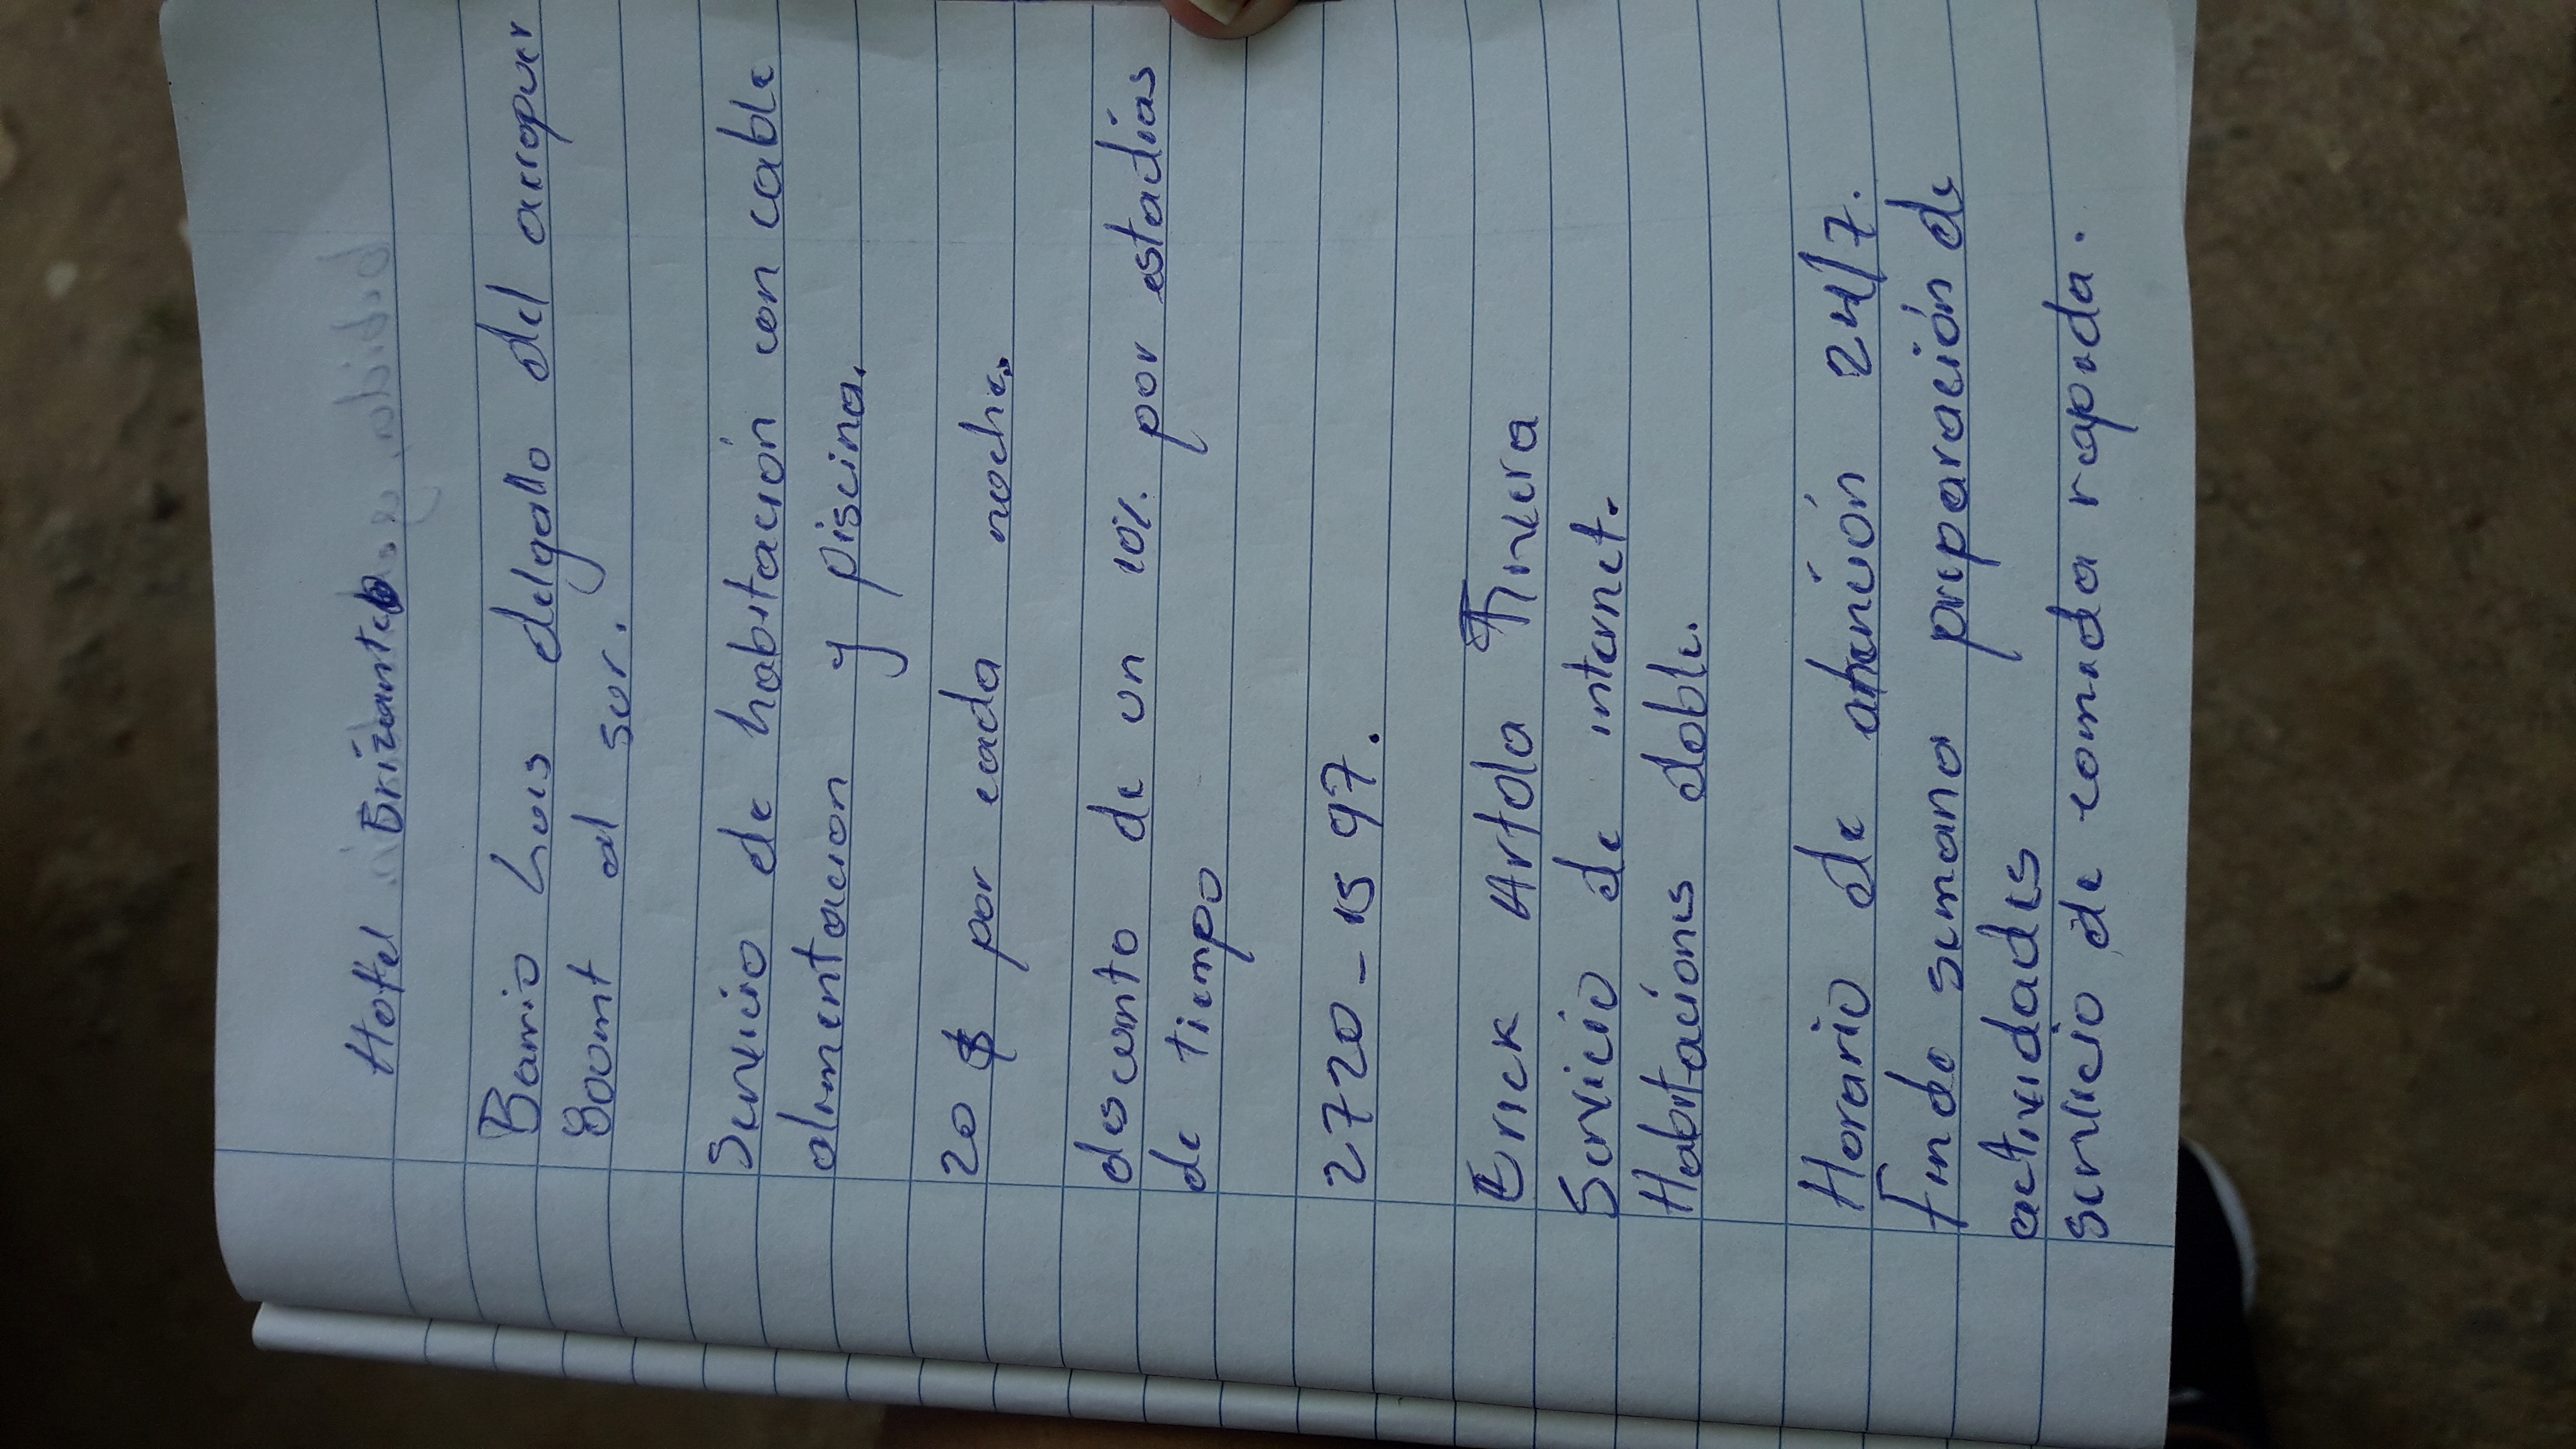 Hotel
Barrio Luis delgallo del aeropuer
800mt al sur.
Servicio de habitación con cable
alimentacion y piscina.
20 $ por cada noche.
descuento de un 10%. por estadias
de tiempo
2720-1597.
Erick Artola Rivera
Servicio de internet.
Habitaciones doble.
Horario de atención 24/7.
fin de semana preparación de
actividades
servicio de comida rapida.